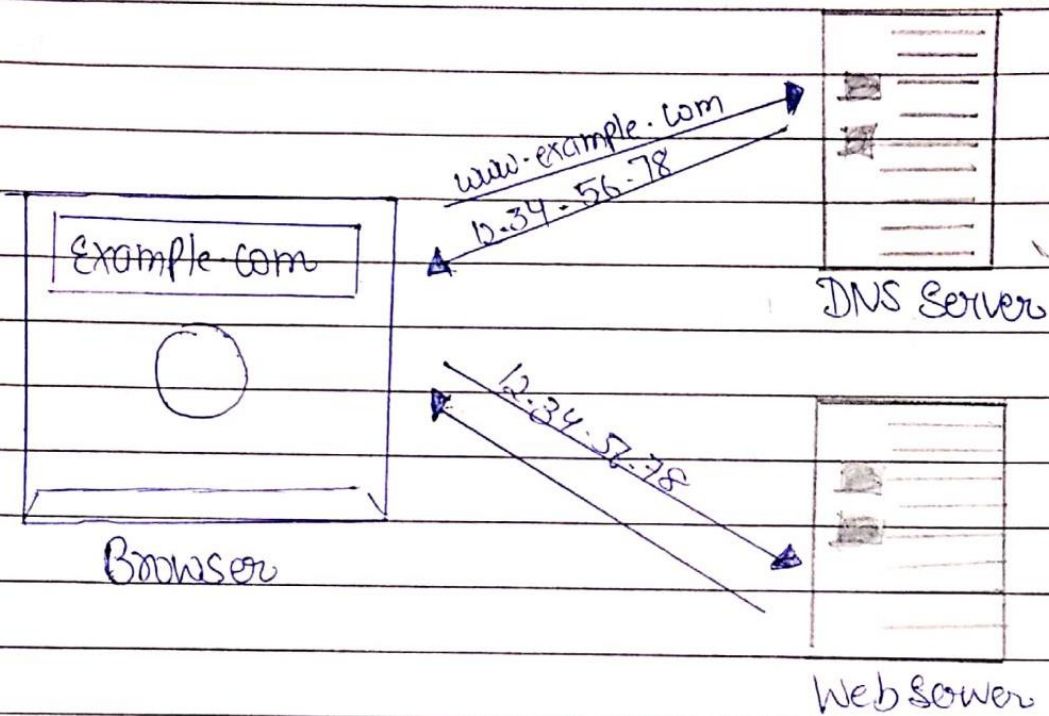 www.example.com
12.34.56.78
Example.com
DNS Server
12.34.56.78
Browser
Web Server